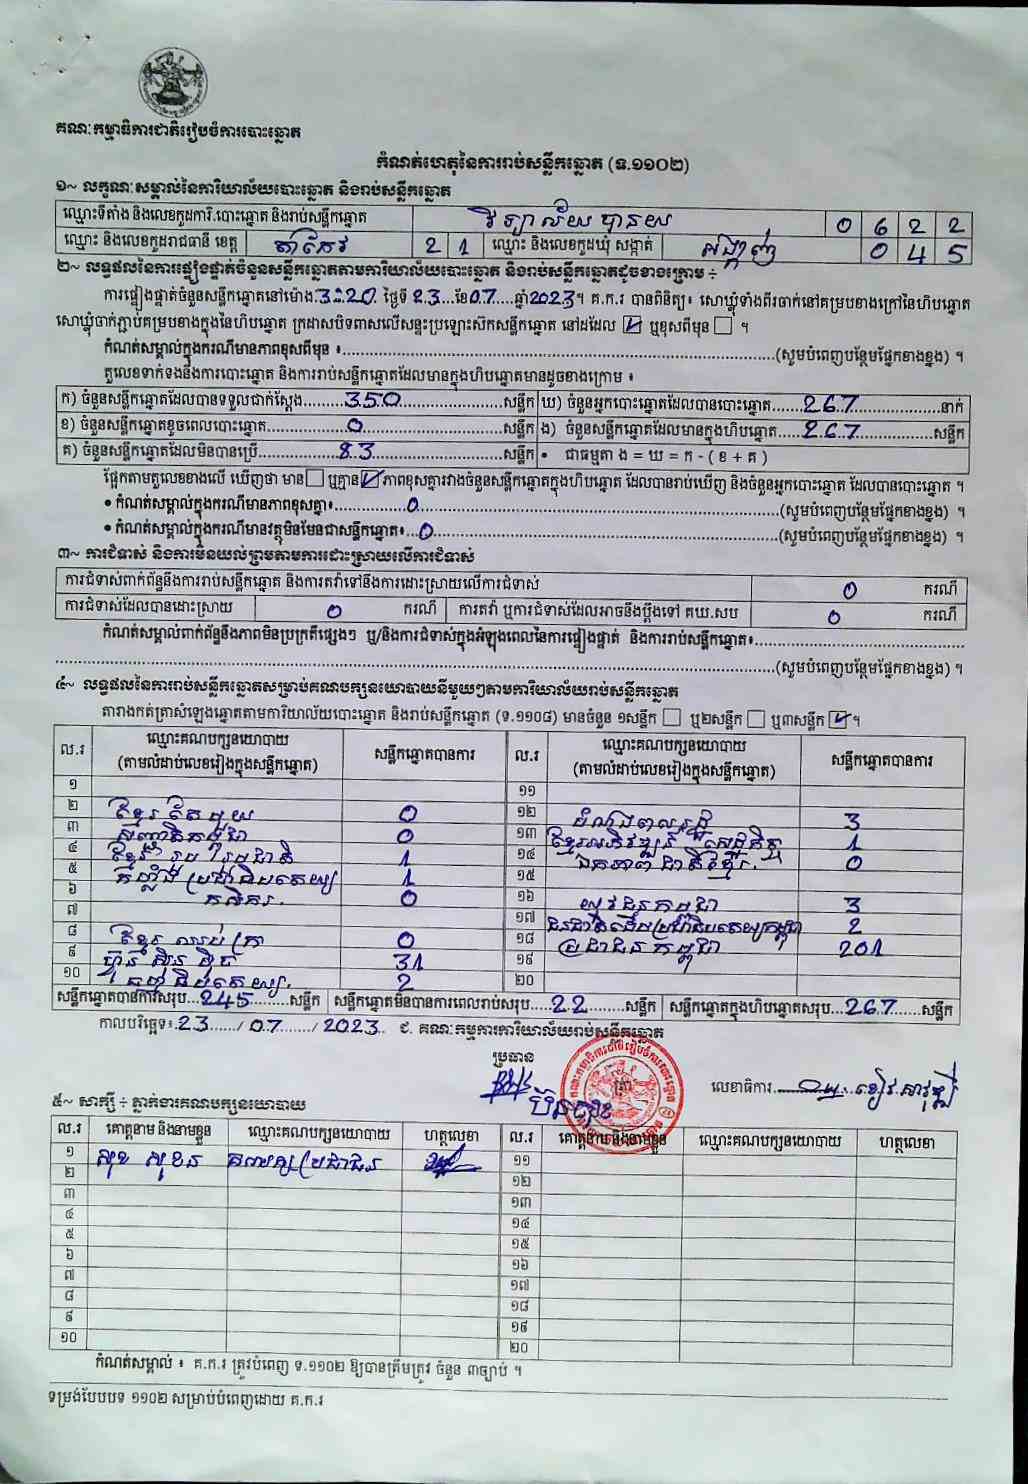 គណៈកម្មាធិការជាតិរៀបចំការបោះឆ្នោត
កំណត់ហេតុនៃការរាប់សន្លឹកឆ្នោត (ទ.១១០២)
១~ លក្ខណៈសម្គាល់នៃការិយាល័យបោះឆ្នោត និងរាប់សន្លឹកឆ្នោត
ឈ្មោះទីតាំង និងលេខកូដការិ.បោះឆ្នោត និងរាប់សន្លឹកឆ្នោត វិទ្យាល័យ បានយ 0 6 2 2
ឈ្មោះ និងលេខកូដរាជធានី ខេត្ត តាកែវ 2 1 ឈ្មោះ និងលេខកូដឃុំ សង្កាត់ អង្កាញ់ 0 4 5
២~ លទ្ធផលនៃការផ្ទៀងផ្ទាត់ចំនួនសន្លឹកឆ្នោតតាមការិយាល័យបោះឆ្នោត និងរាប់សន្លឹកឆ្នោតដូចខាងក្រោម ៖
ការផ្ទៀងផ្ទាត់ចំនួនសន្លឹកឆ្នោតនៅម៉ោង 3:20 ថ្ងៃទី 23 ខែ 07 ឆ្នាំ 2023។ គ.ក.រ បានពិនិត្យ៖ សោឃ្មុំទាំងពីរចាក់នៅគម្របខាងក្រៅនៃហិបឆ្នោត
សោឃ្មុំចាក់ភ្ជាប់គម្របខាងក្នុងនៃហិបឆ្នោត ក្រដាសបិទពាសលើសន្ទះប្រឡោះស៊កសន្លឹកឆ្នោត នៅដដែល ☑ ឬខុសពីមុន ☐ ។
កំណត់សម្គាល់ក្នុងករណីមានភាពខុសពីមុន ៖ (សូមបំពេញបន្ថែមផ្នែកខាងខ្នង) ។
តួលេខទាក់ទងនឹងការបោះឆ្នោត និងការរាប់សន្លឹកឆ្នោតដែលមានក្នុងហិបឆ្នោតមានដូចខាងក្រោម ៖
ក) ចំនួនសន្លឹកឆ្នោតដែលបានទទួលជាក់ស្តែង 350 សន្លឹក ឃ) ចំនួនអ្នកបោះឆ្នោតដែលបានបោះឆ្នោត 267 នាក់
ខ) ចំនួនសន្លឹកឆ្នោតខូចពេលបោះឆ្នោត 0 សន្លឹក ង) ចំនួនសន្លឹកឆ្នោតដែលមានក្នុងហិបឆ្នោត 267 សន្លឹក
គ) ចំនួនសន្លឹកឆ្នោតដែលមិនបានប្រើ 83 សន្លឹក • ជាធម្មតា ង = ឃ = ក - ( ខ + គ )
ផ្អែកតាមតួលេខខាងលើ ឃើញថា មាន ☐ ឬគ្មាន ☑ ភាពខុសគ្នារវាងចំនួនសន្លឹកឆ្នោតក្នុងហិបឆ្នោត ដែលបានរាប់ឃើញ និងចំនួនអ្នកបោះឆ្នោត ដែលបានបោះឆ្នោត ។
• កំណត់សម្គាល់ក្នុងករណីមានភាពខុសគ្នា៖ 0 (សូមបំពេញបន្ថែមផ្នែកខាងខ្នង) ។
• កំណត់សម្គាល់ក្នុងករណីមានវត្ថុមិនមែនជាសន្លឹកឆ្នោត៖ 0 (សូមបំពេញបន្ថែមផ្នែកខាងខ្នង) ។
៣~ ការជំទាស់ និងការមិនយល់ព្រមតាមការដោះស្រាយលើការជំទាស់
ការជំទាស់ពាក់ព័ន្ធនឹងការរាប់សន្លឹកឆ្នោត និងការតវ៉ាទៅនឹងការដោះស្រាយលើការជំទាស់ 0 ករណី
ការជំទាស់ដែលបានដោះស្រាយ 0 ករណី ការតវ៉ា ឬការជំទាស់ដែលអាចនឹងប្តឹងទៅ គឃ.សប 0 ករណី
កំណត់សម្គាល់ពាក់ព័ន្ធនឹងភាពមិនប្រក្រតីផ្សេងៗ ឬ/និងការជំទាស់ក្នុងអំឡុងពេលនៃការផ្ទៀងផ្ទាត់ និងការរាប់សន្លឹកឆ្នោត៖
(សូមបំពេញបន្ថែមផ្នែកខាងខ្នង) ។
៤~ លទ្ធផលនៃការរាប់សន្លឹកឆ្នោតសម្រាប់គណបក្សនយោបាយនីមួយៗតាមការិយាល័យរាប់សន្លឹកឆ្នោត
តារាងកត់ត្រាសំឡេងឆ្នោតតាមការិយាល័យបោះឆ្នោត និងរាប់សន្លឹកឆ្នោត (ទ.១១០៨) មានចំនួន ១សន្លឹក ☐ ឬ២សន្លឹក ☐ ឬ៣សន្លឹក ☑ ។
ល.រ ឈ្មោះគណបក្សនយោបាយ (តាមលំដាប់លេខរៀងក្នុងសន្លឹកឆ្នោត) សន្លឹកឆ្នោតបានការ ល.រ ឈ្មោះគណបក្សនយោបាយ (តាមលំដាប់លេខរៀងក្នុងសន្លឹកឆ្នោត) សន្លឹកឆ្នោតបានការ
១ ១១
២ ខ្មែរតែមួយ 0 ១២ សំណុំពលរដ្ឋ 3
៣ សញ្ជាតិកម្ពុជា 0 ១៣ ខ្មែរអភិវឌ្ឍន៍ សេដ្ឋកិច្ច 1
៤ ខ្មែរ រួបរួមជាតិ 1 ១៤ ឯកភាពជាតិខ្មែរ 0
៥ កំលាំងប្រជាធិបតេយ្យ 1 ១៥
៦ កសិករ 0 ១៦ យុវជនកម្ពុជា 3
៧ ១៧ ជនជាតិដើមប្រជាធិបតេយ្យកម្ពុជា 2
៨ ខ្មែរឈប់ក្រ 0 ១៨ ប្រជាជនកម្ពុជា 201
៩ ហ៊្វុនស៊ិនប៉ិច 31 ១៩
១០ ធម្មាធិបតេយ្យ 2 ២០
សន្លឹកឆ្នោតបានការសរុប 245 សន្លឹក សន្លឹកឆ្នោតមិនបានការពេលរាប់សរុប 22 សន្លឹក សន្លឹកឆ្នោតក្នុងហិបឆ្នោតសរុប 267 សន្លឹក
កាលបរិច្ឆេទ៖ 23 / 07 / 2023 ជ. គណៈកម្មការការិយាល័យរាប់សន្លឹកឆ្នោត
ប្រធាន ត្រា លេខាធិការ
៥~ សាក្សី ៖ ភ្នាក់ងារគណបក្សនយោបាយ
ល.រ គោត្តនាម និងនាមខ្លួន ឈ្មោះគណបក្សនយោបាយ ហត្ថលេខា ល.រ គោត្តនាម និងនាមខ្លួន ឈ្មោះគណបក្សនយោបាយ ហត្ថលេខា
១ សុខ សុខន គណបក្សប្រជាជន ១១
២ ១២
៣ ១៣
៤ ១៤
៥ ១៥
៦ ១៦
៧ ១៧
៨ ១៨
៩ ១៩
១០ ២០
កំណត់សម្គាល់ ៖ គ.ក.រ ត្រូវបំពេញ ទ.១១០២ ឱ្យបានត្រឹមត្រូវ ចំនួន ៣ច្បាប់ ។
ទម្រង់បែបបទ ១១០២ សម្រាប់បំពេញដោយ គ.ក.រ